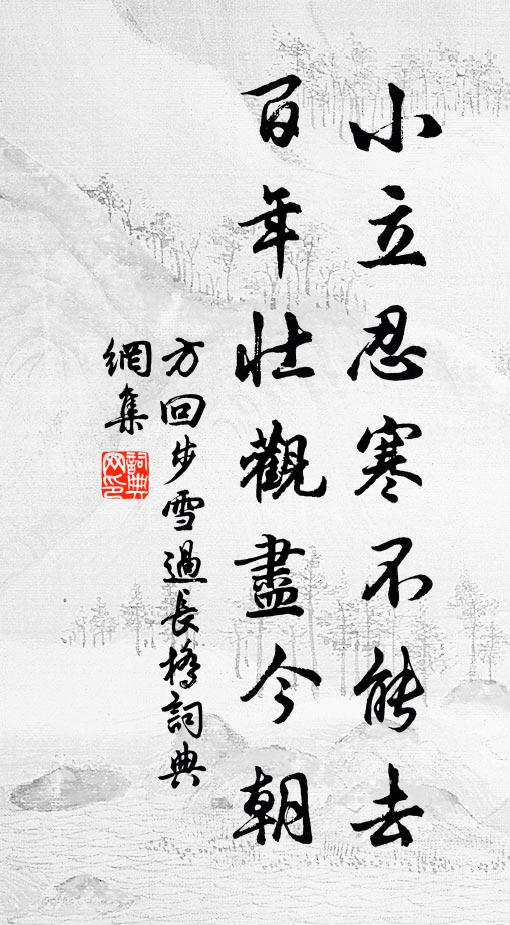 小立忍寒不能去
百年壯觀盡今朝
方回步雪過長橋詞典
網集
詞典網印